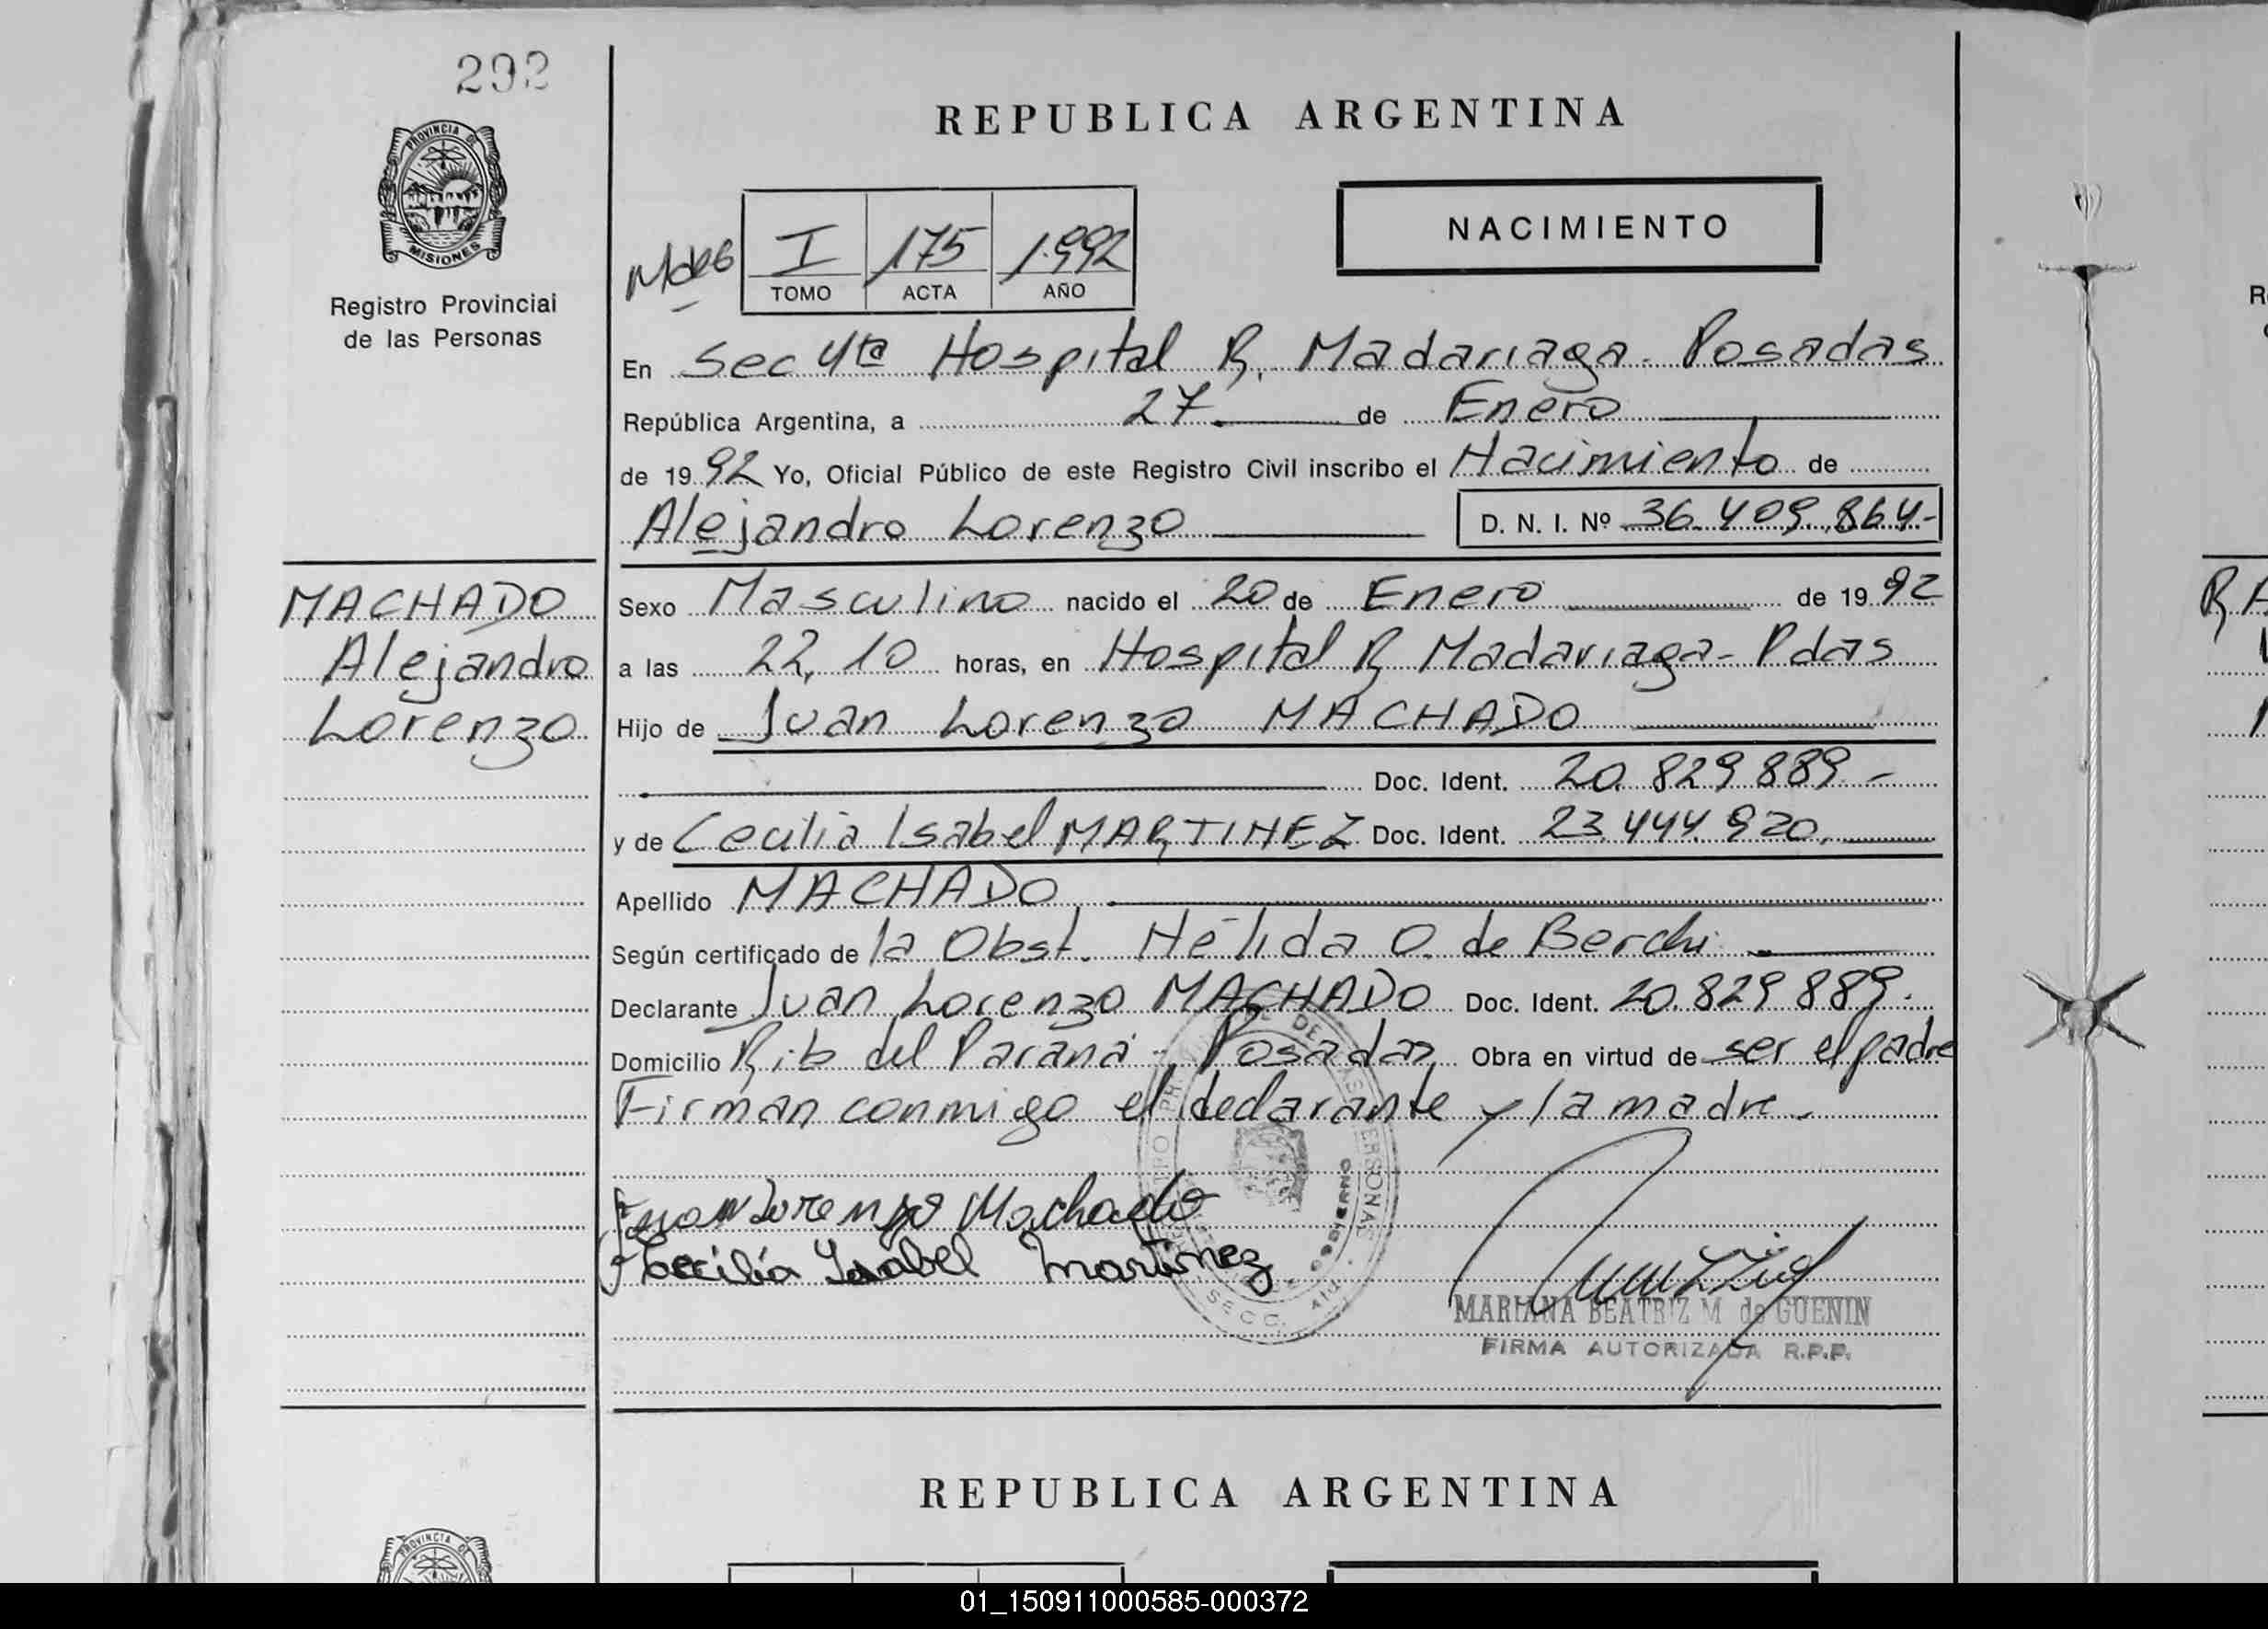 292
PROVINCIA DE
MISIONES
Registro Provincial
de las Personas
REPUBLICA ARGENTINA
NACIMIENTO
I 175 1.992
TOMO ACTA AÑO
En Sec 4ta Hospital R. Madariaga - Posadas
República Argentina, a 27 de Enero
de 1992 Yo, Oficial Público de este Registro Civil inscribo el Nacimiento de
Alejandro Lorenzo D. N. I. Nº 36.409.864-
MACHADO
Alejandro
Lorenzo
Sexo Masculino nacido el 20 de Enero de 1992
a las 22,10 horas, en Hospital R Madariaga - Pdas
Hijo de Juan Lorenzo MACHADO
Doc. Ident. 20.829.889 -
y de Cecilia Isabel MARTINEZ Doc. Ident. 23.444.920.
Apellido MACHADO
Según certificado de la Obst. Nélida O. de Berchi
Declarante Juan Lorenzo MACHADO Doc. Ident. 20.829.889.
Domicilio Rib del Paraná - Posadas Obra en virtud de ser el padre
Firman conmigo el declarante y la madre.
Juan Lorenzo Machado
Cecilia Ysabel Martinez
MARIANA BEATRIZ M de GUENIN
FIRMA AUTORIZADA R.P.P.
REPUBLICA ARGENTINA
PROVINCIA DE
01_150911000585-000372